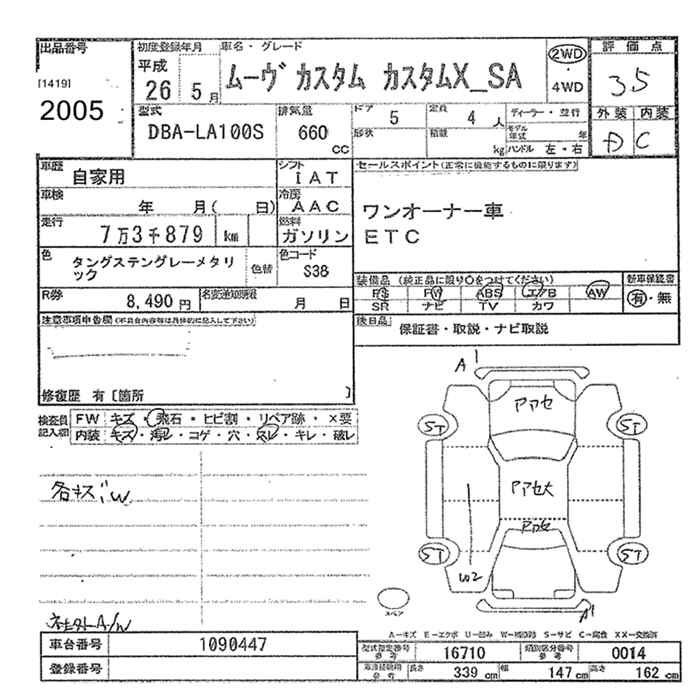 出品番号 初度登録年月 車名・グレード 評価点
[1419] 2005
平成 26 5月
ムーヴ カスタム カスタムX_SA
2WD・4WD
3.5
型式 DBA-LA100S
排気量 660 cc
ドア 5 定員 4 人 ディーラー・並行
形状 積載 kg モデル年式 年 ハンドル 左・右
外装 内装
D C
車歴 自家用 シフト IAT
セールスポイント(正常に機能するものに限ります)
車検 年 月( 日) 冷房 AAC
走行 7万3千879 km 燃料 ガソリン
ワンオーナー車
ETC
色 タングステングレーメタリック 色替 色コード S38
装備品 (純正品に限り○をつけてください) 新車保証書
PS PW ABS エアB AW 有・無
SR ナビ TV カワ
R券 8,490円 名変通知期限 月 日
後日品 保証書・取説・ナビ取説
注意事項申告欄(不具合内容等は具体的に記入して下さい)
修復歴 有〔箇所 〕
検査員記入欄 FW キズ・飛石・ヒビ割・リペア跡・×要
内装 キズ・汚レ・コゲ・穴・スレ・キレ・破レ
各キズW
社外A/W
A1
アアセ
ST ST
アアセ大
アアセ
ST ST
W2
スペア
A1
A-キズ E-エクボ U-凹み S-サビ C-腐食 XX-交換済
車台番号 1090447
登録番号
型式指定番号 参考 16710 類別区分番号 参考 0014
参考 長さ 339 cm 幅 147 cm 高さ 162 cm